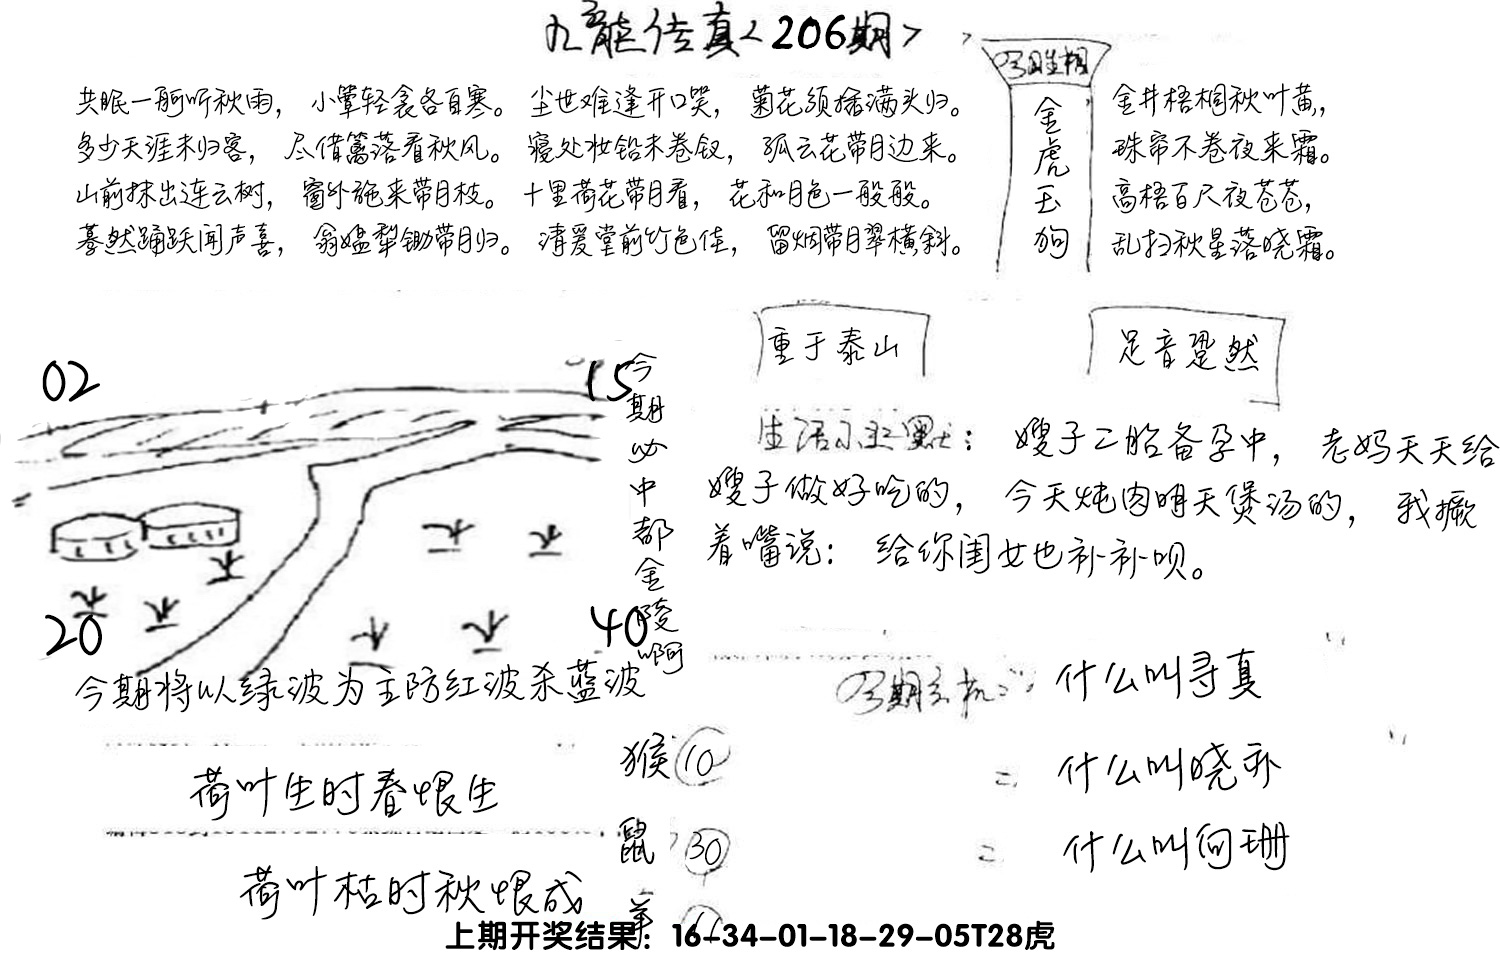 九龙传真<206期>
共眠一舸听秋雨，小簟轻衾各自寒。尘世难逢开口笑，菊花须插满头归。
多少天涯未归客，尽借篱落看秋风。寝处妆铅未卷钗，孤云花带月边来。
山前抹出连云树，窗外施来带月枝。十里荷花带月看，花和月色一般般。
蓦然踊跃闻声喜，翁媪犁锄带月归。清爱堂前竹色佳，留烟带月翠横斜。
今期生相
金虎玉狗
金井梧桐秋叶黄，
珠帘不卷夜来霜。
高梧百尺夜苍苍，
乱扫秋星落晓霜。
重于泰山
足音跫然
02
15
20
40
今期必中都金陵啊
生活小幽默：嫂子二胎备孕中，老妈天天给
嫂子做好吃的，今天炖肉明天煲汤的，我撅
着嘴说：给你闺女也补补呗。
今期将以绿波为主防红波杀蓝波
今期玄机：什么叫寻真
什么叫晓
什么叫向珊
荷叶生时春恨生
荷叶枯时秋恨成
猴 10
鼠 30
羊
上期开奖结果：16-34-01-18-29-05T28虎